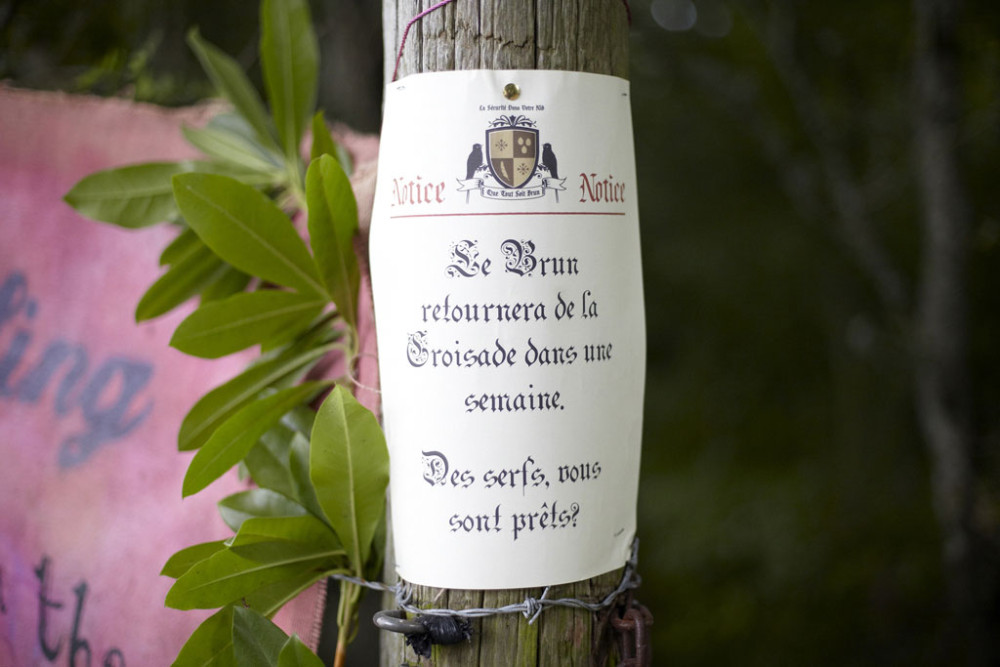 La Sécurité Dans Votre Nid
Notice Notice
Que Tout Soit Brun
Le Brun
retournera de la
Croisade dans une
semaine.
Des serfs, vous
sont prêts?
ing
the